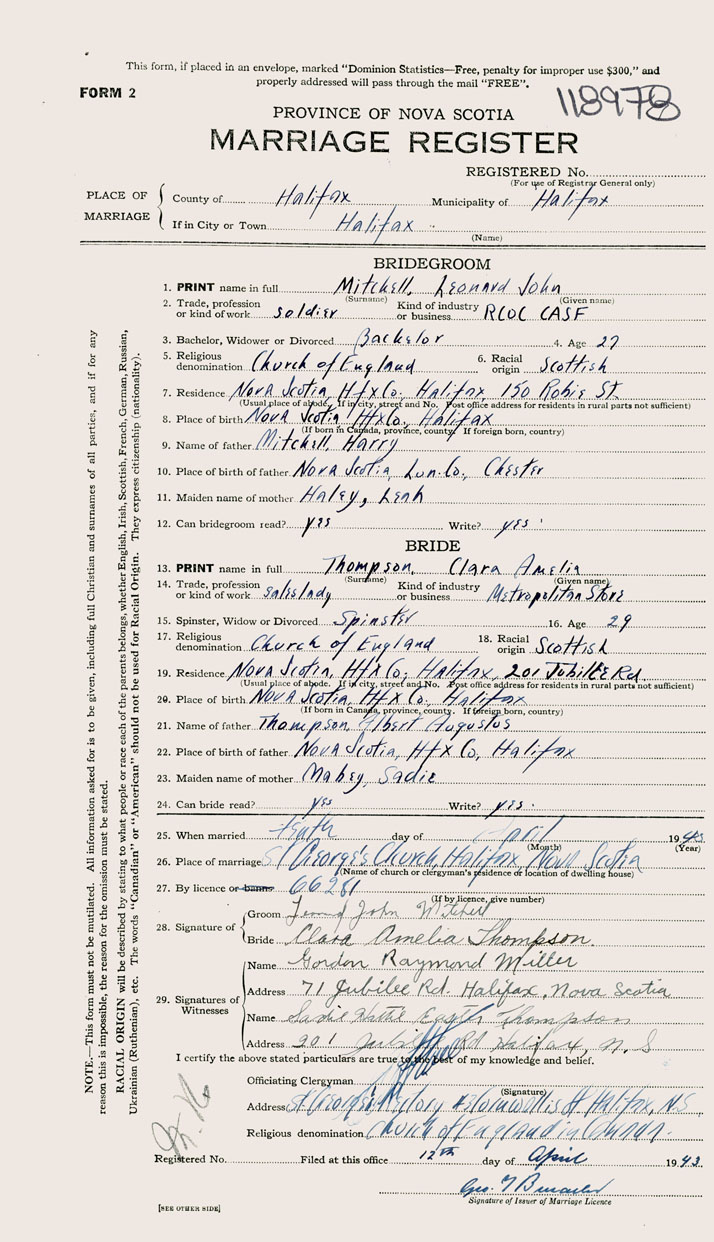 This form, if placed in an envelope, marked "Dominion Statistics—Free, penalty for improper use $300," and
properly addressed will pass through the mail "FREE".
FORM 2
118978
PROVINCE OF NOVA SCOTIA
MARRIAGE REGISTER
REGISTERED No.
(For use of Registrar General only)
PLACE OF MARRIAGE
County of Halifax Municipality of Halifax
If in City or Town Halifax
(Name)
BRIDEGROOM
1. PRINT name in full Mitchell, Leonard John
(Surname) (Given name)
2. Trade, profession or kind of work soldier Kind of industry or business RCOC CASF
3. Bachelor, Widower or Divorced Bachelor 4. Age 27
5. Religious denomination Church of England 6. Racial origin Scottish
7. Residence Nova Scotia, Hfx Co, Halifax, 150 Robie St.
(Usual place of abode. If in city, street and No. Post office address for residents in rural parts not sufficient)
8. Place of birth Nova Scotia, Hfx Co, Halifax
(If born in Canada, province, county. If foreign born, country)
9. Name of father Mitchell, Harry
10. Place of birth of father Nova Scotia, Lun. Co, Chester
11. Maiden name of mother Haley, Leah
12. Can bridegroom read? yes Write? yes
BRIDE
13. PRINT name in full Thompson, Clara Amelia
(Surname) (Given name)
14. Trade, profession or kind of work saleslady Kind of industry or business Metropolitan Store
15. Spinster, Widow or Divorced Spinster 16. Age 29
17. Religious denomination Church of England 18. Racial origin Scottish
19. Residence Nova Scotia, Hfx Co, Halifax, 201 Jubilee Rd.
(Usual place of abode. If in city, street and No. Post office address for residents in rural parts not sufficient)
20. Place of birth Nova Scotia, Hfx Co, Halifax
(If born in Canada, province, county. If foreign born, country)
21. Name of father Thompson, Albert Augustus
22. Place of birth of father Nova Scotia, Hfx Co, Halifax
23. Maiden name of mother Mabey, Sadie
24. Can bride read? yes Write? yes.
25. When married tenth day of April 1943
(Month) (Year)
26. Place of marriage St George's Church, Halifax, Nova Scotia
(Name of church or clergyman's residence or location of dwelling house)
27. By licence or banns 66281
(If by licence, give number)
28. Signature of
Groom John Mitchell
Bride Clara Amelia Thompson.
29. Signatures of Witnesses
Name Gordon Raymond Miller
Address 71 Jubilee Rd. Halifax, Nova Scotia
Name Sadie Thompson
Address 201 Jubilee Rd Halifax, N. S
I certify the above stated particulars are true to the best of my knowledge and belief.
Officiating Clergyman
(Signature)
Address St George's Rectory Halifax, N.S
Religious denomination Church of England in Canada.
Registered No. Filed at this office 12th day of April 1943.
Geo.
Signature of Issuer of Marriage Licence
[SEE OTHER SIDE]
NOTE.—This form must not be mutilated. All information asked for is to be given, including full Christian and surnames of all parties, and if for any
reason this is impossible, the reason for the omission must be stated.
RACIAL ORIGIN will be described by stating to what people or race each of the parents belongs, whether English, Irish, Scottish, French, German, Russian,
Ukrainian (Ruthenian), etc. The words "Canadian" or "American" should not be used for Racial Origin. They express citizenship (nationality).